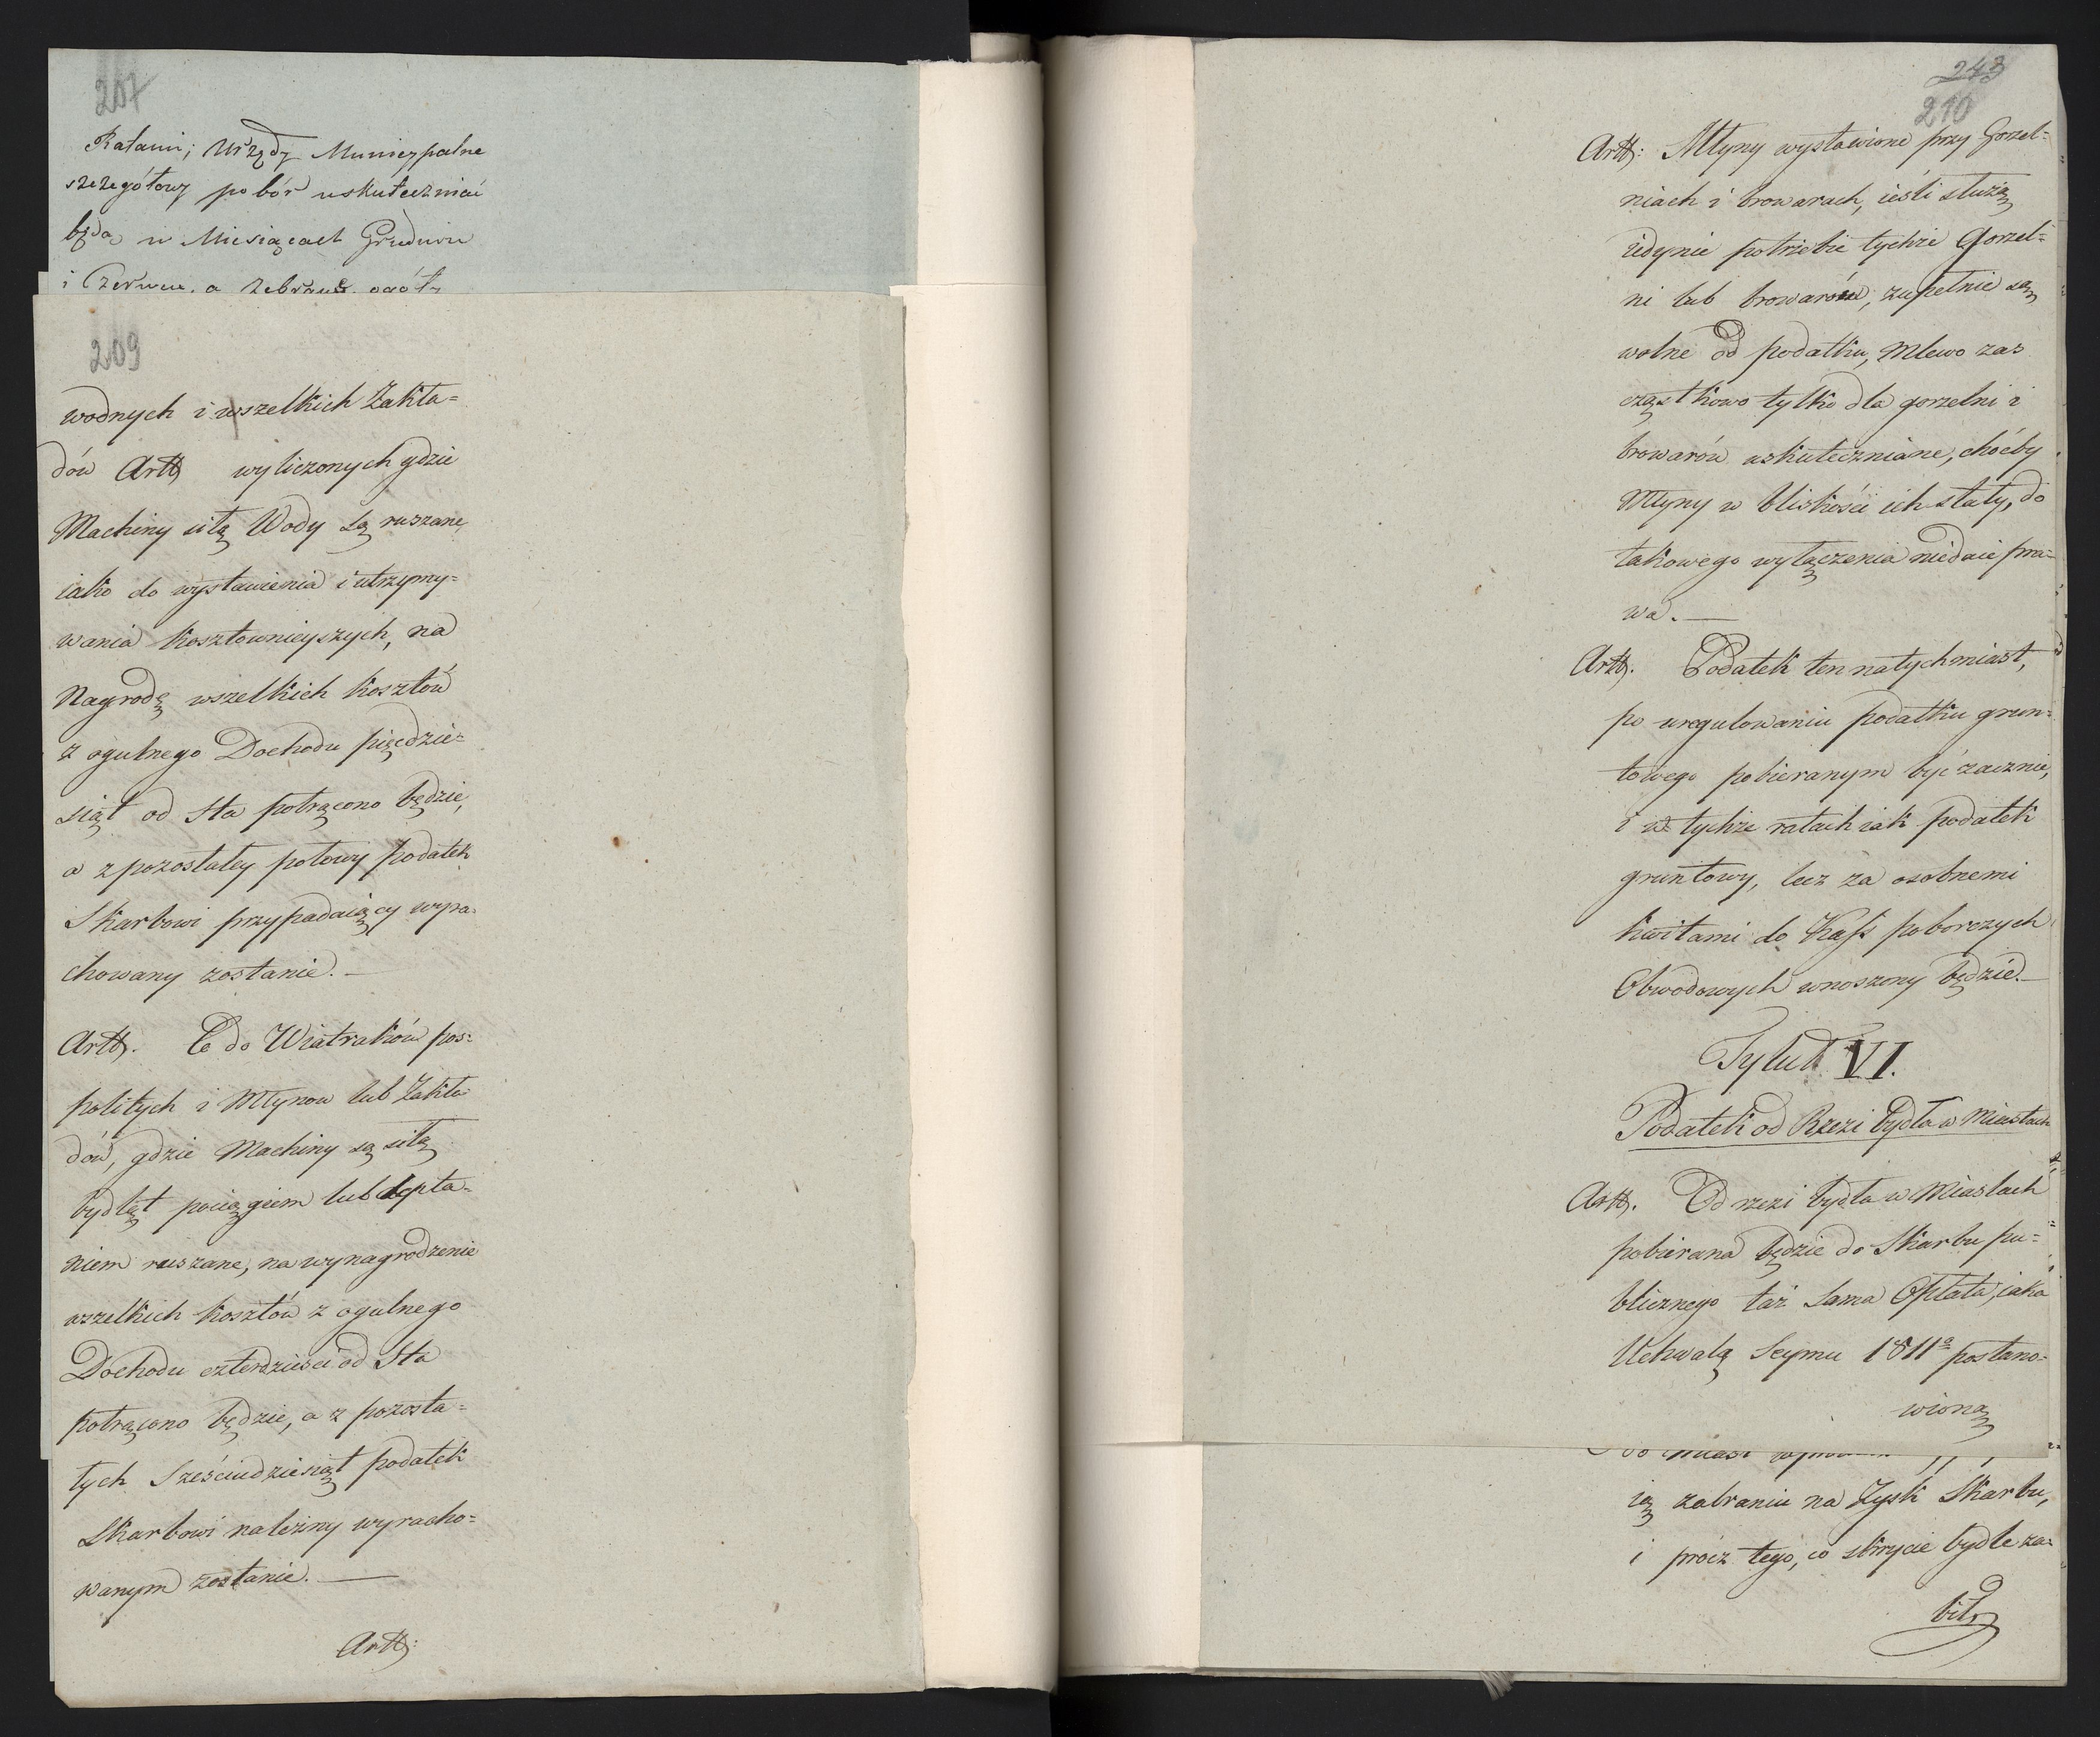 207
Ratami; Urzędy Municypalne
szczegółowy pobór uskuteczniać
będą w Miesiącach Grudniu
i Czerwcu, a zebrane ogóły
209
wodnych i wszelkich Zakła=
dów Artt wyliczonych gdzie
Machiny siłą Wody są ruszane,
iako do wystawienia i utrzymy=
wania kosztownieyszych, na
Nagrodę wszelkich kosztów
z ogulnego Dochodu pięćdzie=
siąt od Sta potrącono będzie,
a z pozostałey połowy podatek
Skarbowi przypadaiący wyra-
chowany zostanie. —
Artt. Co do Wiatraków pos=
politych i Młynow lub Zakła
dów, gdzie Machiny są siłą
bydląt pociągiem lub depta=
niem ruszane, na wynagrodzenie
wszelkich kosztów z ogulnego
Dochodu czterdzieści od Sta
potrącono będzie, a z pozosta=
łych Sześciudziesiąt podatek
Skarbowi należny wyracho=
wanym zostanie. —
Artt:
243
210
Artt: Młyny wystawione przy Gorzel=
niach i browarach, ieśli służą
iedynie potrzebie tychże Gorzel=
ni lub browarów, zupełnie są
wolne od podatku, Mlewo zas
cząstkowo tylko dla gorzelni i
browarów uskuteczniane, choćby
Młyny w bliskości ich stały, do
takowego wyłączenia niedaie pra=
wa. —
Artt. Podatek ten natychmiast,
po uregulowaniu podatku grun=
towego pobieranym być zacznie,
i w tychże ratach iak podatek
gruntowy, lecz za osobnemi
kwitami do Kass poborczych
Obwodowych wnoszony będzie. —
Tytuł VI.
Podatek od Rzezi bydła w Miastach
Artt. Od rzezi bydła w Miastach
pobierana będzie do Skarbu pu=
blicznego taż sama Opłata, iaka
Uchwałą Seymu 1811ᵃ postano=
wioną
do miast
ią zabraniu na Zysk Skarbu,
i prócz tego, co skrycie bydle za=
bił